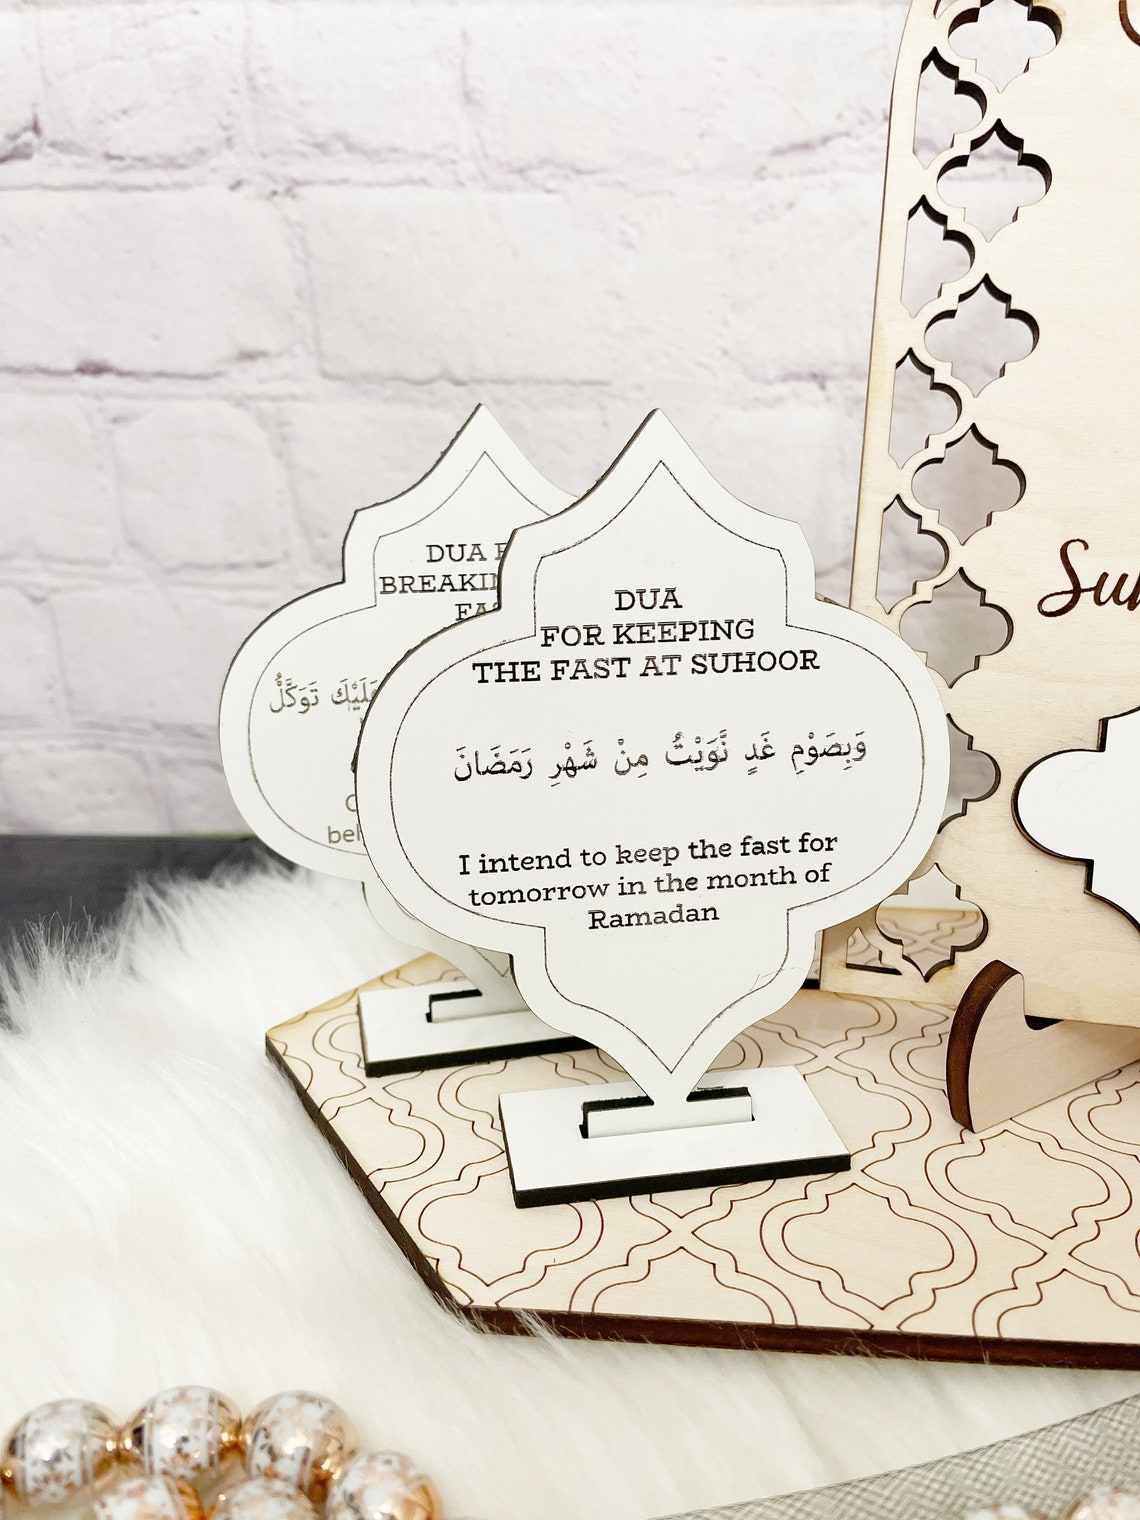 DUA
BREAKIN
FA
عَلَيْكَ تَوَكَّلْ
bel
DUA
FOR KEEPING
THE FAST AT SUHOOR
وَبِصَوْمِ غَدٍ نَّوَيْتُ مِنْ شَهْرِ رَمَضَانَ
I intend to keep the fast for
tomorrow in the month of
Ramadan
Suh